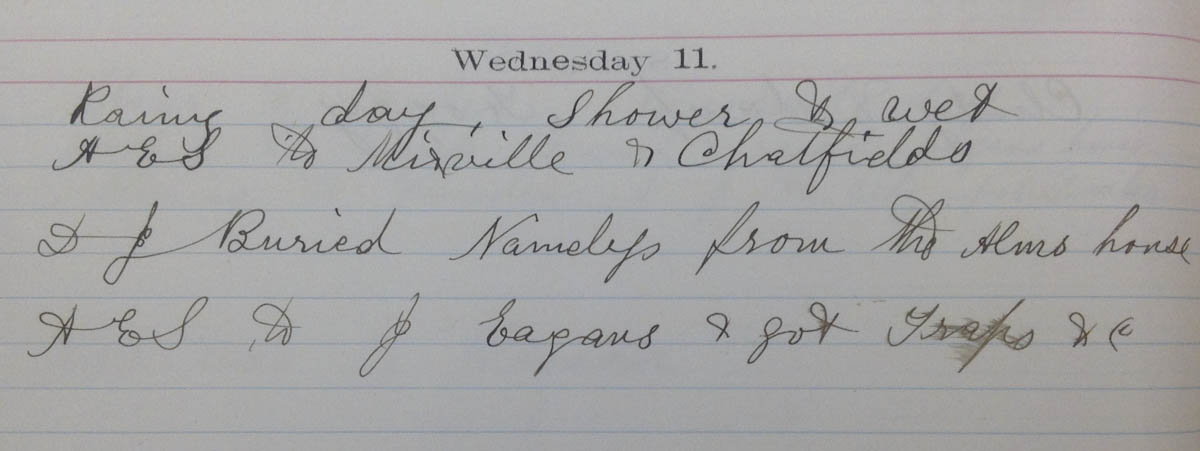 Wednesday 11.
Rainy day, Shower & wet
A E S to Mixville & Chatfields
D J Buried from the Alms house
A E S to J Eagans & got Traps & c